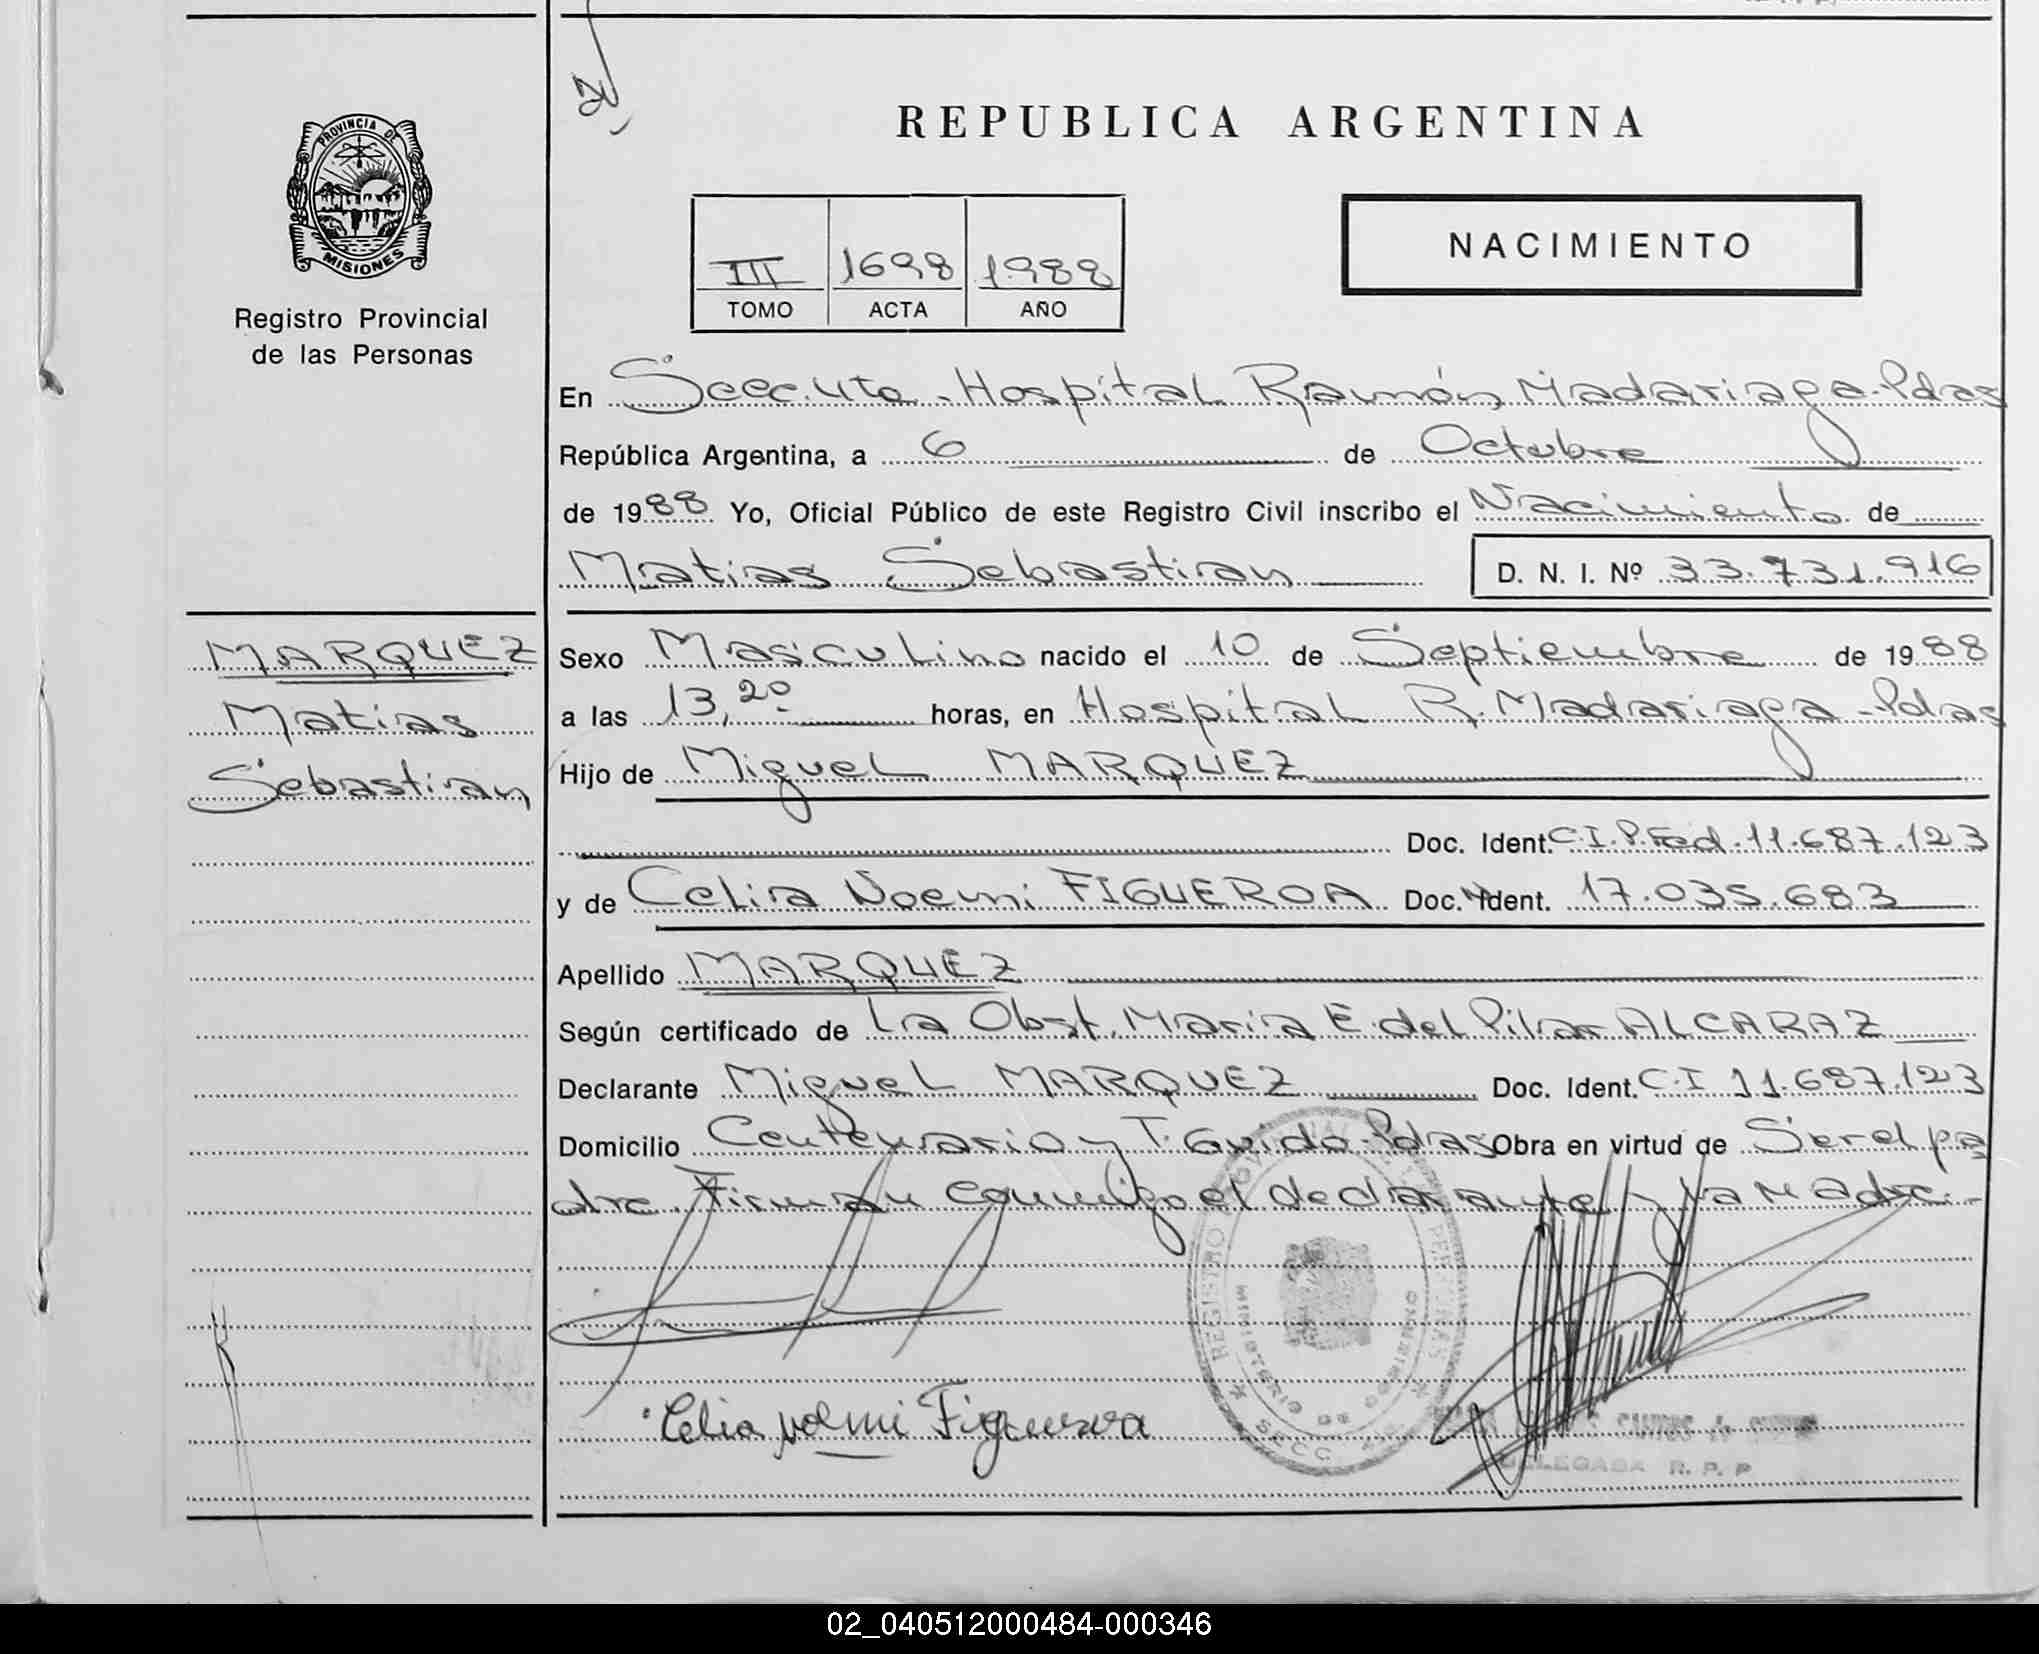 PROVINCIA DE
MISIONES
Registro Provincial
de las Personas
MARQUEZ
Matias
Sebastian
REPUBLICA ARGENTINA
III 1698 1988
TOMO ACTA AÑO
NACIMIENTO
En Hospital Ramón Madariaga-Pdas
República Argentina, a 6 de Octubre
de 1988 Yo, Oficial Público de este Registro Civil inscribo el Nacimiento de
Matias Sebastian D. N. I. Nº 33.731.916
Sexo Masculino nacido el 10 de Septiembre de 1988
a las 13,20 horas, en Hospital R. Madariaga-Pdas
Hijo de Miguel MARQUEZ
Doc. Ident. C.I.P.Fed. 11.687.123
y de Celia Noemi FIGUEROA Doc. Ident. 17.035.683
Apellido MARQUEZ
Según certificado de La Obst. Maria E. del Pilar ALCARAZ
Declarante Miguel MARQUEZ Doc. Ident. C.I 11.687.123
Domicilio Centenario y T. Guido-Pdas Obra en virtud de Ser el pa
dre. Firman conmigo el declarante y la Madre.-
REGISTRO PROVINCIAL DE LAS PERSONAS
MINISTERIO DE GOBIERNO
SECC.
Celia Noemi Figueroa
DELEGADA R. P. P.
02_040512000484-000346